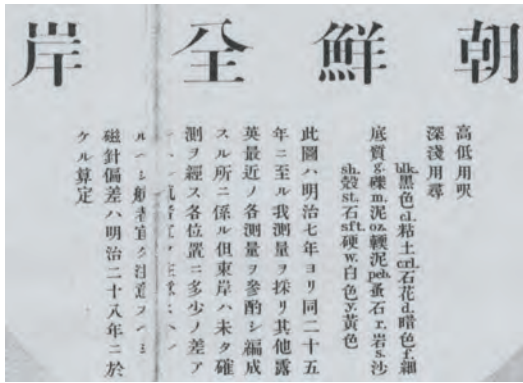 朝鮮全岸
高低用呎
深淺用尋
blk.黑色cl.粘土crl.石花d.暗色f.細
底質g.礫m.泥oz.輭泥peb.蚤石r.岩s.沙
sh.殼st.石sft.硬w.白色y.黃色
此圖ハ明治七年ヨリ同二十五
年ニ至ル我測量ヲ採リ其他露
英最近ノ各測量ヲ參酌シ編成
スル所ニ係ル但東岸ハ未タ確
測ヲ經ス各位置ニ多少ノ差ア
ルヘシ航者宜ク注意スヘシ
磁針偏差ハ明治二十八年ニ於
ケル算定